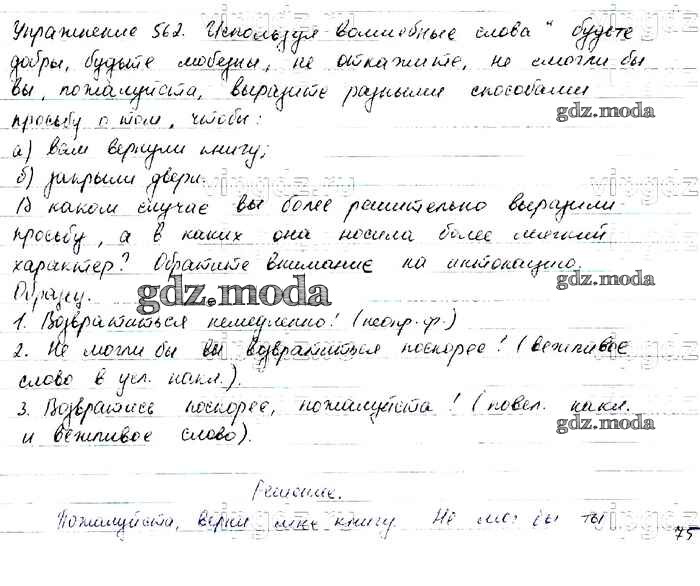 Упражнение 562. Используя волшебные слова "будьте
добры, будьте любезны, не откажите, не смогли бы
вы, пожалуйста, выразите разными способами
просьбу о том, чтобы:
gdz.moda
а) вам вернули книгу;
б) закрыли двери.
vipgdz.ru
В каком случае вы более решительно выразили
просьбу, а в каких она носила более мягкий
характер? Обратите внимание на интонацию.
gdz.moda
Образец.
gdz.moda
1. Возвратиться немедленно! (неопр. ф.)
2. Не могли бы вы возвратиться поскорее! (вежливое
слово в усл. накл.).
3. Возвратись поскорее, пожалуйста! (повел. накл.
gdz.moda
и вежливое слово).
Решение.
Пожалуйста, верни мне книгу. Не мог бы ты
75